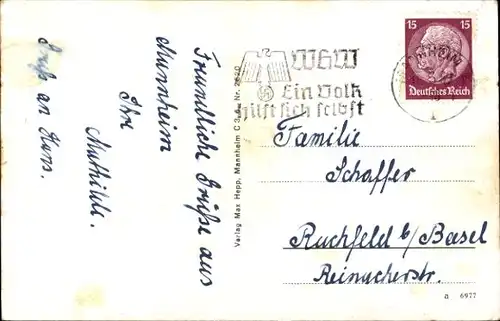 Freundliche Grüße aus
Mannheim
Ihre
Mathilde.
Gruß an Hans.
Verlag Max Hepp, Mannheim C 3,
WHW
Ein Volk
hilft sich selbst
15 15
Deutsches Reich
Familie
Schaffer
Ruchfeld b/Basel
Reinacherstr.
a 6977